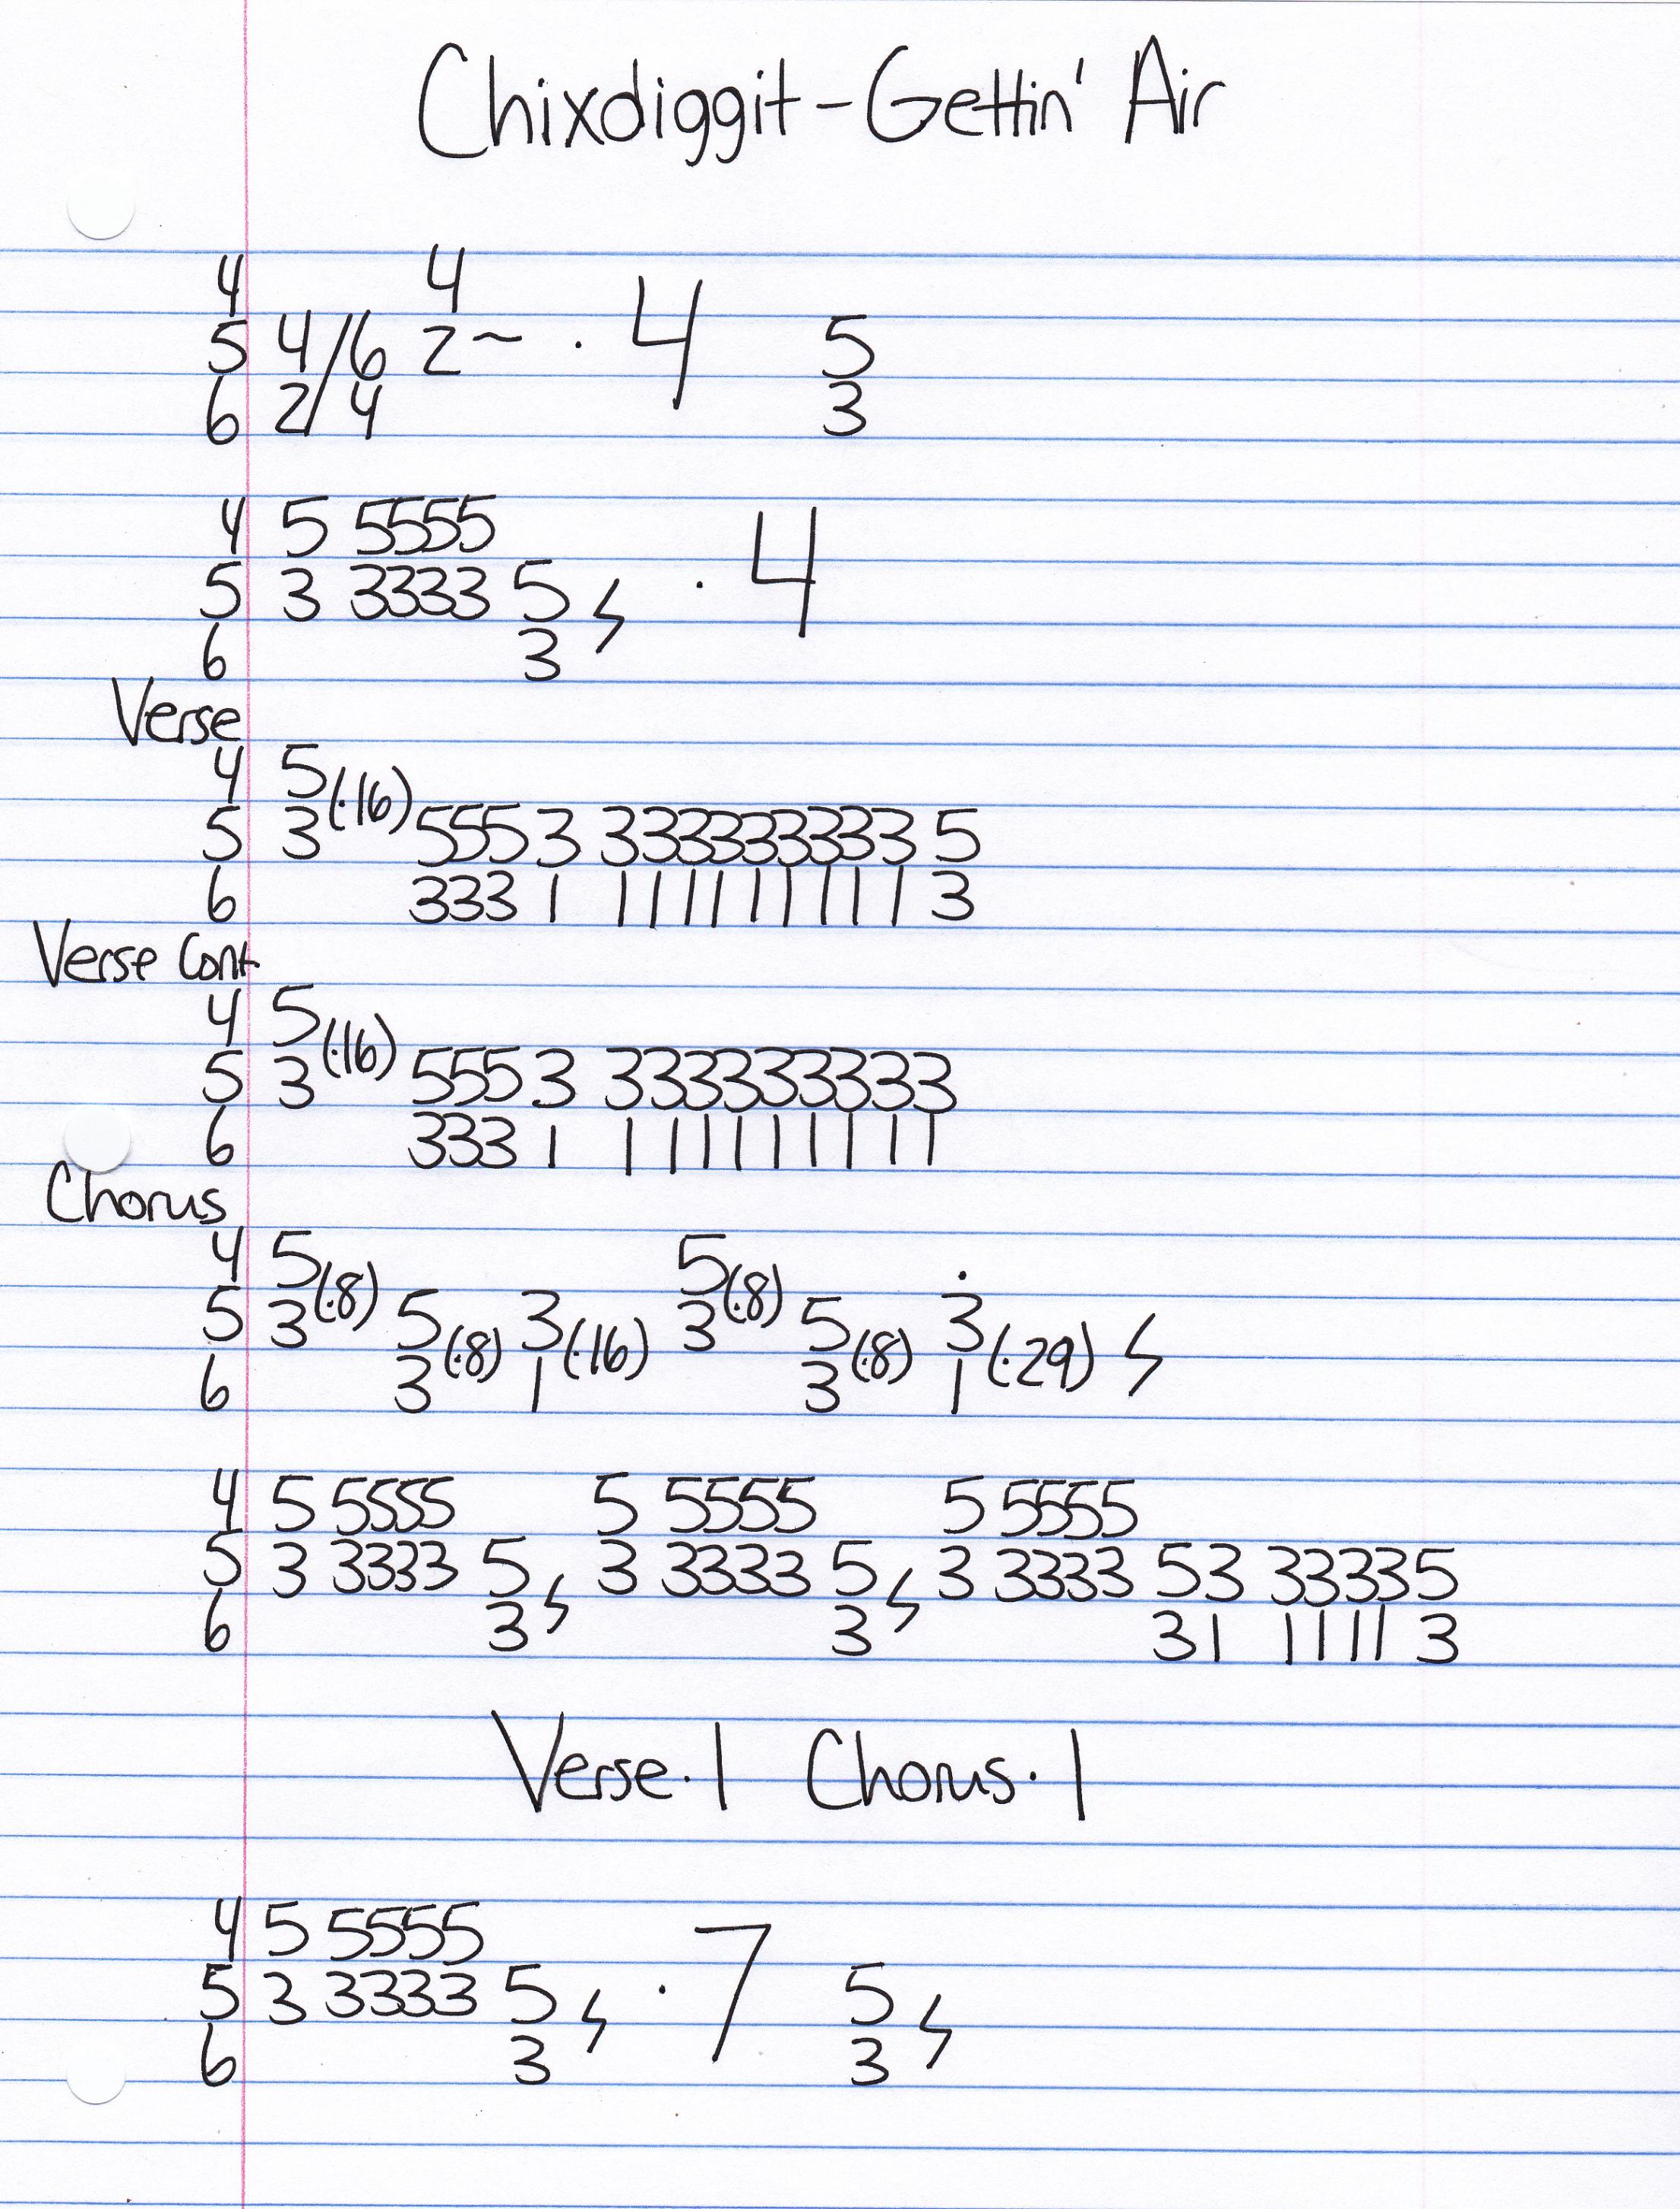 Chixdiggit - Gettin' Air
4 4
5 4/6 2~ · 4 5
6 2/4 3
4 5 5555
5 3 3333 5 ϟ · 4
6 3
Verse
4 5
5 3 (·16) 555 3 333333333 5
6 333 1 111111111 3
Verse Cont
4 5
5 3 (·16) 555 3 333333333
6 333 1 111111111
Chorus
4 5 5 ·
5 3 (·8) 5 3 3 (·8) 5 3
6 3 (·8) 1 (·16) 3 (·8) 1 (·29) ϟ
4 5 5555 5 5555 5 5555
5 3 3333 5 ϟ 3 3333 5 ϟ 3 3333 53 33335
6 3 3 31 1111 3
Verse · 1 Chorus · 1
4 5 5555
5 3 3333 5 ϟ · 7 5 ϟ
6 3 3